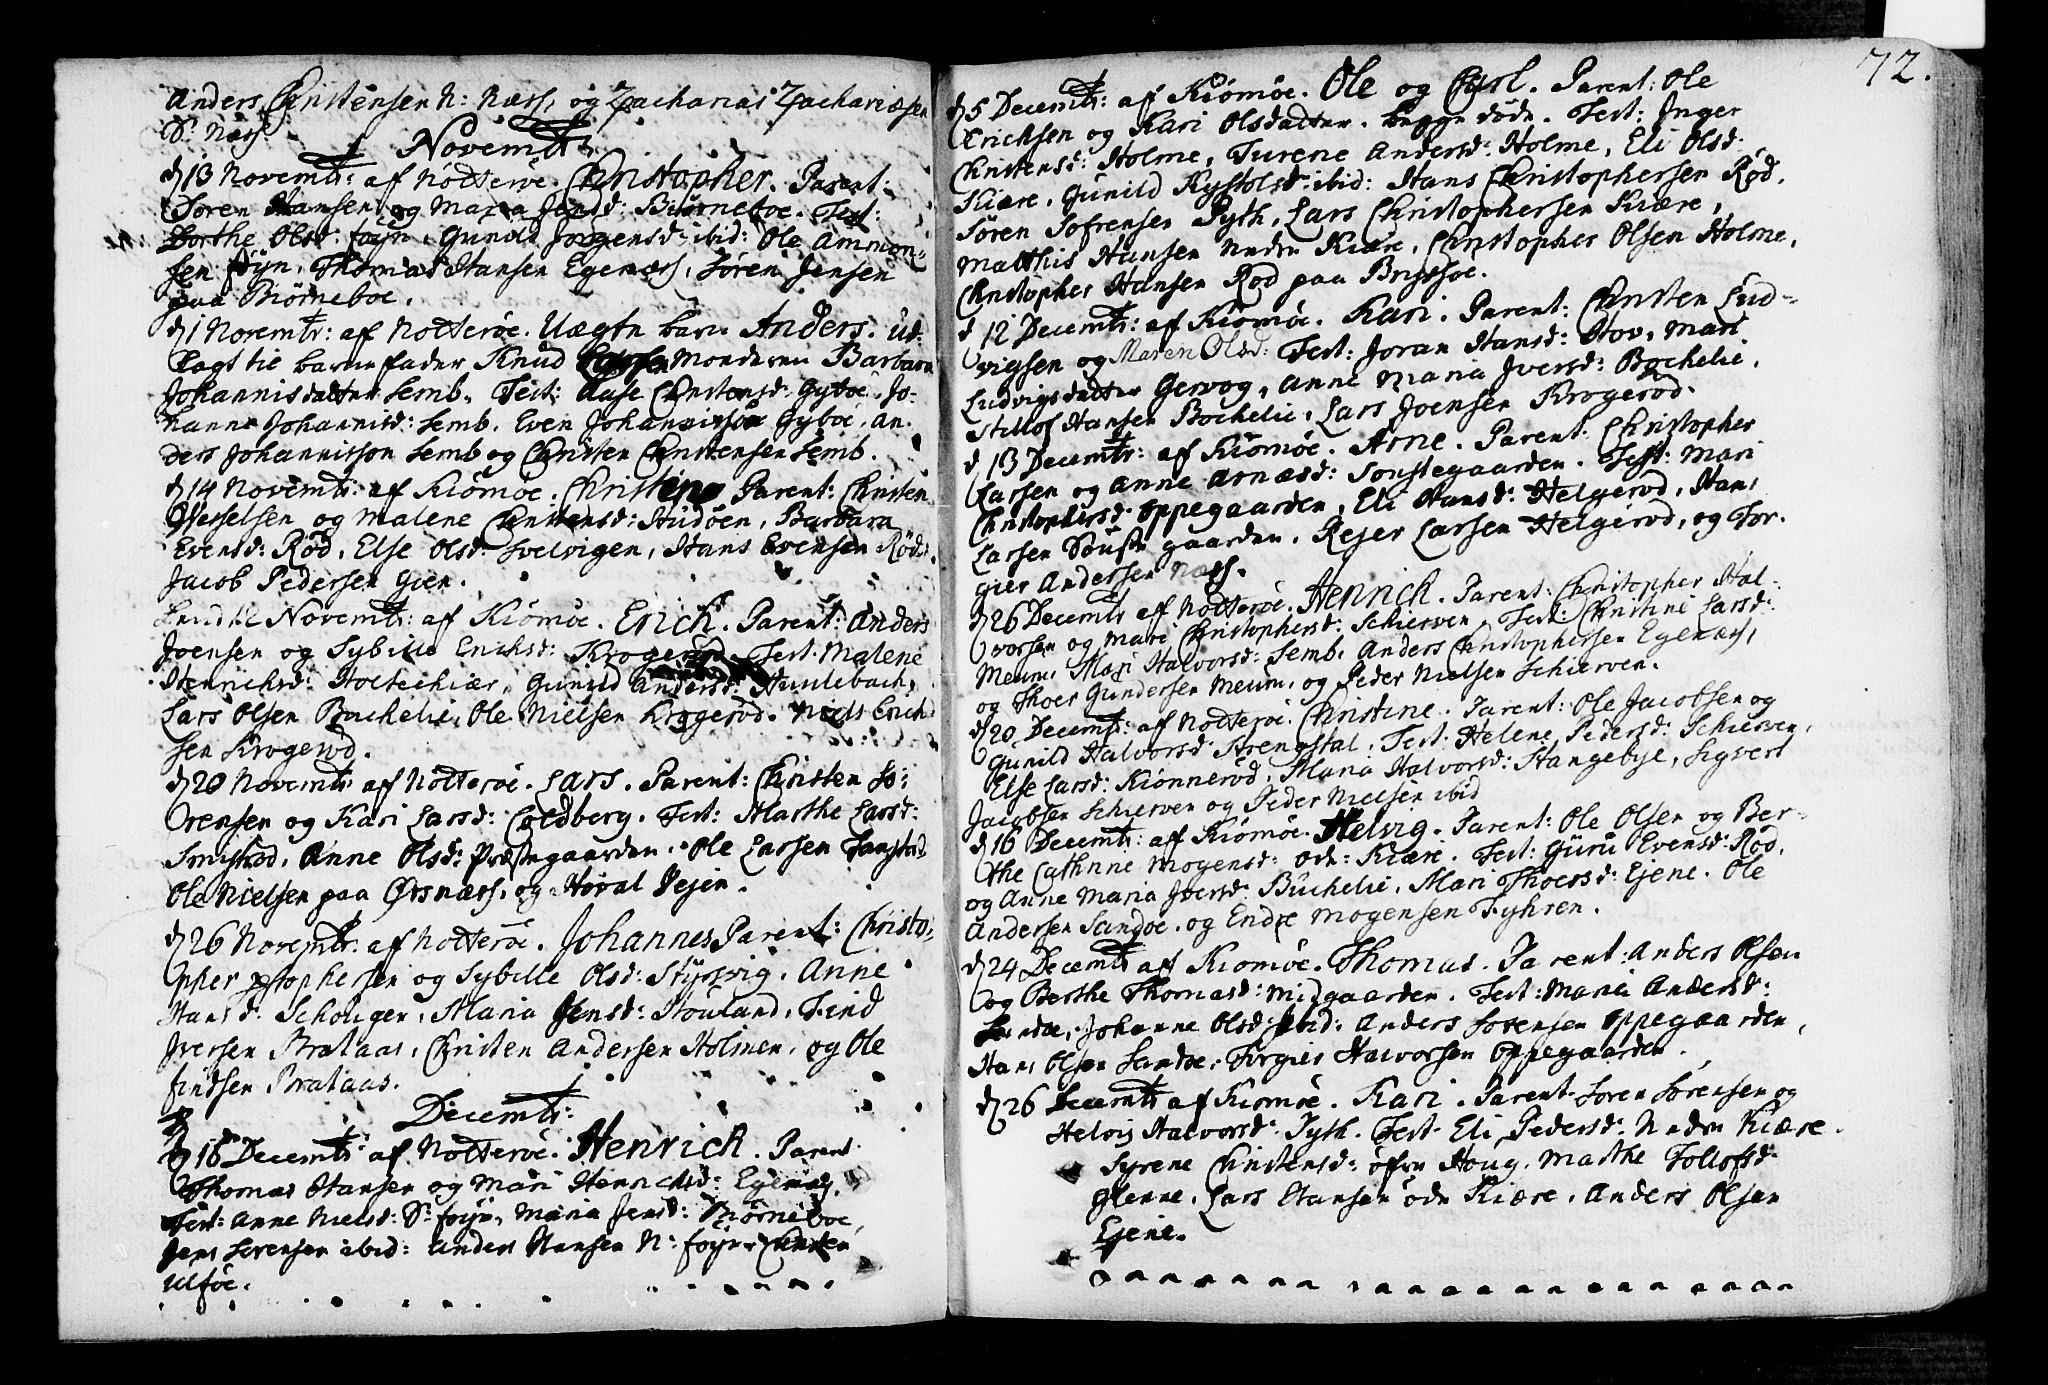 Anders Christensen N: Næss, og Zacharias Zachariæsen
S: Næss.
Novembr:
d 13 Novembr: af Nötteröe. Christopher. Parent:
Sören Hansen og Maria Jensd: Biörneboe. Test:
Dorthe Olsd: föÿn, Gunild Jörgensd: ibid: Ole Ammon-
sen föÿn, Thomas Hansen Egenæss, Sören Jensen
paa Biörneboe.
d 1 Novembr: af Nötteröe. Uægte barn Anders. Ud-
lagt til barne fader Knud Moderen Barbara
Johannisdatter Semb. Test: Aase Christensd: Gyboe, Jo-
hanne Johannisd: Semb. Even Johannisson Gyboe, An-
ders Johannisson Semb og Christen Christensen Semb.
d 14 Novembr: af Kiömöe. Christine Parent: Christen
Wesselsen og Malene Christensd: Hudöen, Barbara
Evensd: Röd, Else Olsd: Svelvigen, Hans Evensen Röd,
Jacob Pedersen Gien.
Novembr: af Kiömöe. Erich. Parent: Anders
Joensen og Sybille Erichsd: Krogeröd. Test. Malene
Henrichsd: Holtekiær, Gunild Andersd: Hunlebach,
Lars Olsen Buchelie, Ole Nielsen Krogeröd. Niels Erich
sen Krogeröd.
d 20 Novembr: af Nötteröe. Lars. Parent: Christen Sö-
rensen og Kari Larsd: Coldberg. Test: Marthe Larsd:
Smistad. Anne Olsd: Præstegaarden. Ole Larsen
Ole Nielsen paa Örsnæss, og Vejen.
d 26 Novembr: af Nötteröe. Johannes Parent: Christo-
pher Xstophersen og Sybille Olsd: Styrsvig. Anne
Hansd: Schouger, Maria Jensd: Houland, Find
Iversen Brataas, Christen Andersen Holmen, og Ole
findsen Brataas.
Decembr:
d 16 Decembr: af Nötteröe. Henrich. Parent
Thomas Hansen og Mari Henrichsd: Egenæss.
Test: Anne Nielsd: S: föÿn, Maria Jensd: Biörneboe,
Jens Sörensen ibid: Anders Hansen N: föÿn Christen
Ulföe.
72.
d 5 Decembr: af Kiömöe. Ole og Carl. Parent: Ole
Erichsen og Kari Olsdatter. begge döde. Test: Inger
Christensd: Holme, Turene Andersd: Holme, Eli Olsd:
Kiære, Gunild Kystolsd: ibid: Hans Christophersen Röd,
Sören Sofrensen Pyth, Lars Christophersen Kiære,
Matthis Hansen Nedre Kiære, Christopher Olsen Holme,
Christopher Hansen Röd paa Brÿssöe.
d 12 Decembr: af Kiömöe. Kari. Parent: Christen Lud-
vigsen og Maren Olsd: Test: Joran Hansd: Hov, Mari
Ludvigsdatter Gervog, Anne Maria Iversd: Bochelie,
Stillof Hansen Bochelie, Lars Joensen Krogeröd.
d 13 Decembr: af Kiömöe. Arne. Parent: Christopher
Larsen og Anne Arnæsd: Sönstegaarden. Test: Mari
Christophersd: oppegaarden, Eli Hansd: Helgeröd, Hans
Larsen Sönste gaarden, Rejer Larsen Helgeröd, og Tor-
gier Andersen Næss.
d 26 Decembr af Nötteröe. Henrich. Parent: Christopher Hal-
vorsen og Mari Christophersd: Schierven. Test: Christine Larsd:
Meum, Mari Halvorsd: Semb, Anders Christophersen Egenæss,
og Thoer Gundersen Meum, og Peder Nielsen Schierven.
d 20 Decembr: af Nötteröe. Christine. Parent: Ole Jacobsen og
Gunild Halvorsd: Strengstal, Test: Helene Pedersd: Schierven,
Else Larsd: Kiönneröd, Maria Halvorsd: Stangebye, Sigvert
Jacobsen Schierven og Peder Nielsen ibid
d 16 Decembr: af Kiömöe. Helvig. Parent: Ole Olsen og Ber-
the Cathrine Mogensd: öde: Kiære. Test: Guru Evensd: Röd,
og Anne Maria Iversd: Buchelie, Mari Thoersd: Ejene. Ole
Andersen Sandöe, og Endre Mogensen Fyhren.
d 24 Decembr af Kiömöe. Thomas. Parent: Anders Olsen
og Berthe Thomasd: Midgaarden. Test: Maria Andersd:
Sandöe, Johanne Olsd: ibid: Anders Sörensen oppegaarden,
Hans Olsen Sandöe, Torgier Halvorsen Oppegaarden.
d 26 Decembr af Kiömöe. Kari. Parent. Sören Sörensen og
Helvig Halvorsd: Pyth. Test. Eli Pedersd: Nedre Kiære.
Syrene Christensd: öfre Houg. Marthe Tollofsd:
Glenne, Lars Hansen öde Kiære, Anders Olsen
Ejene.